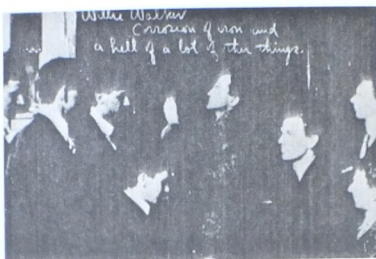 Willie Walker
Corrosion of iron and
a hell of a lot of other things.